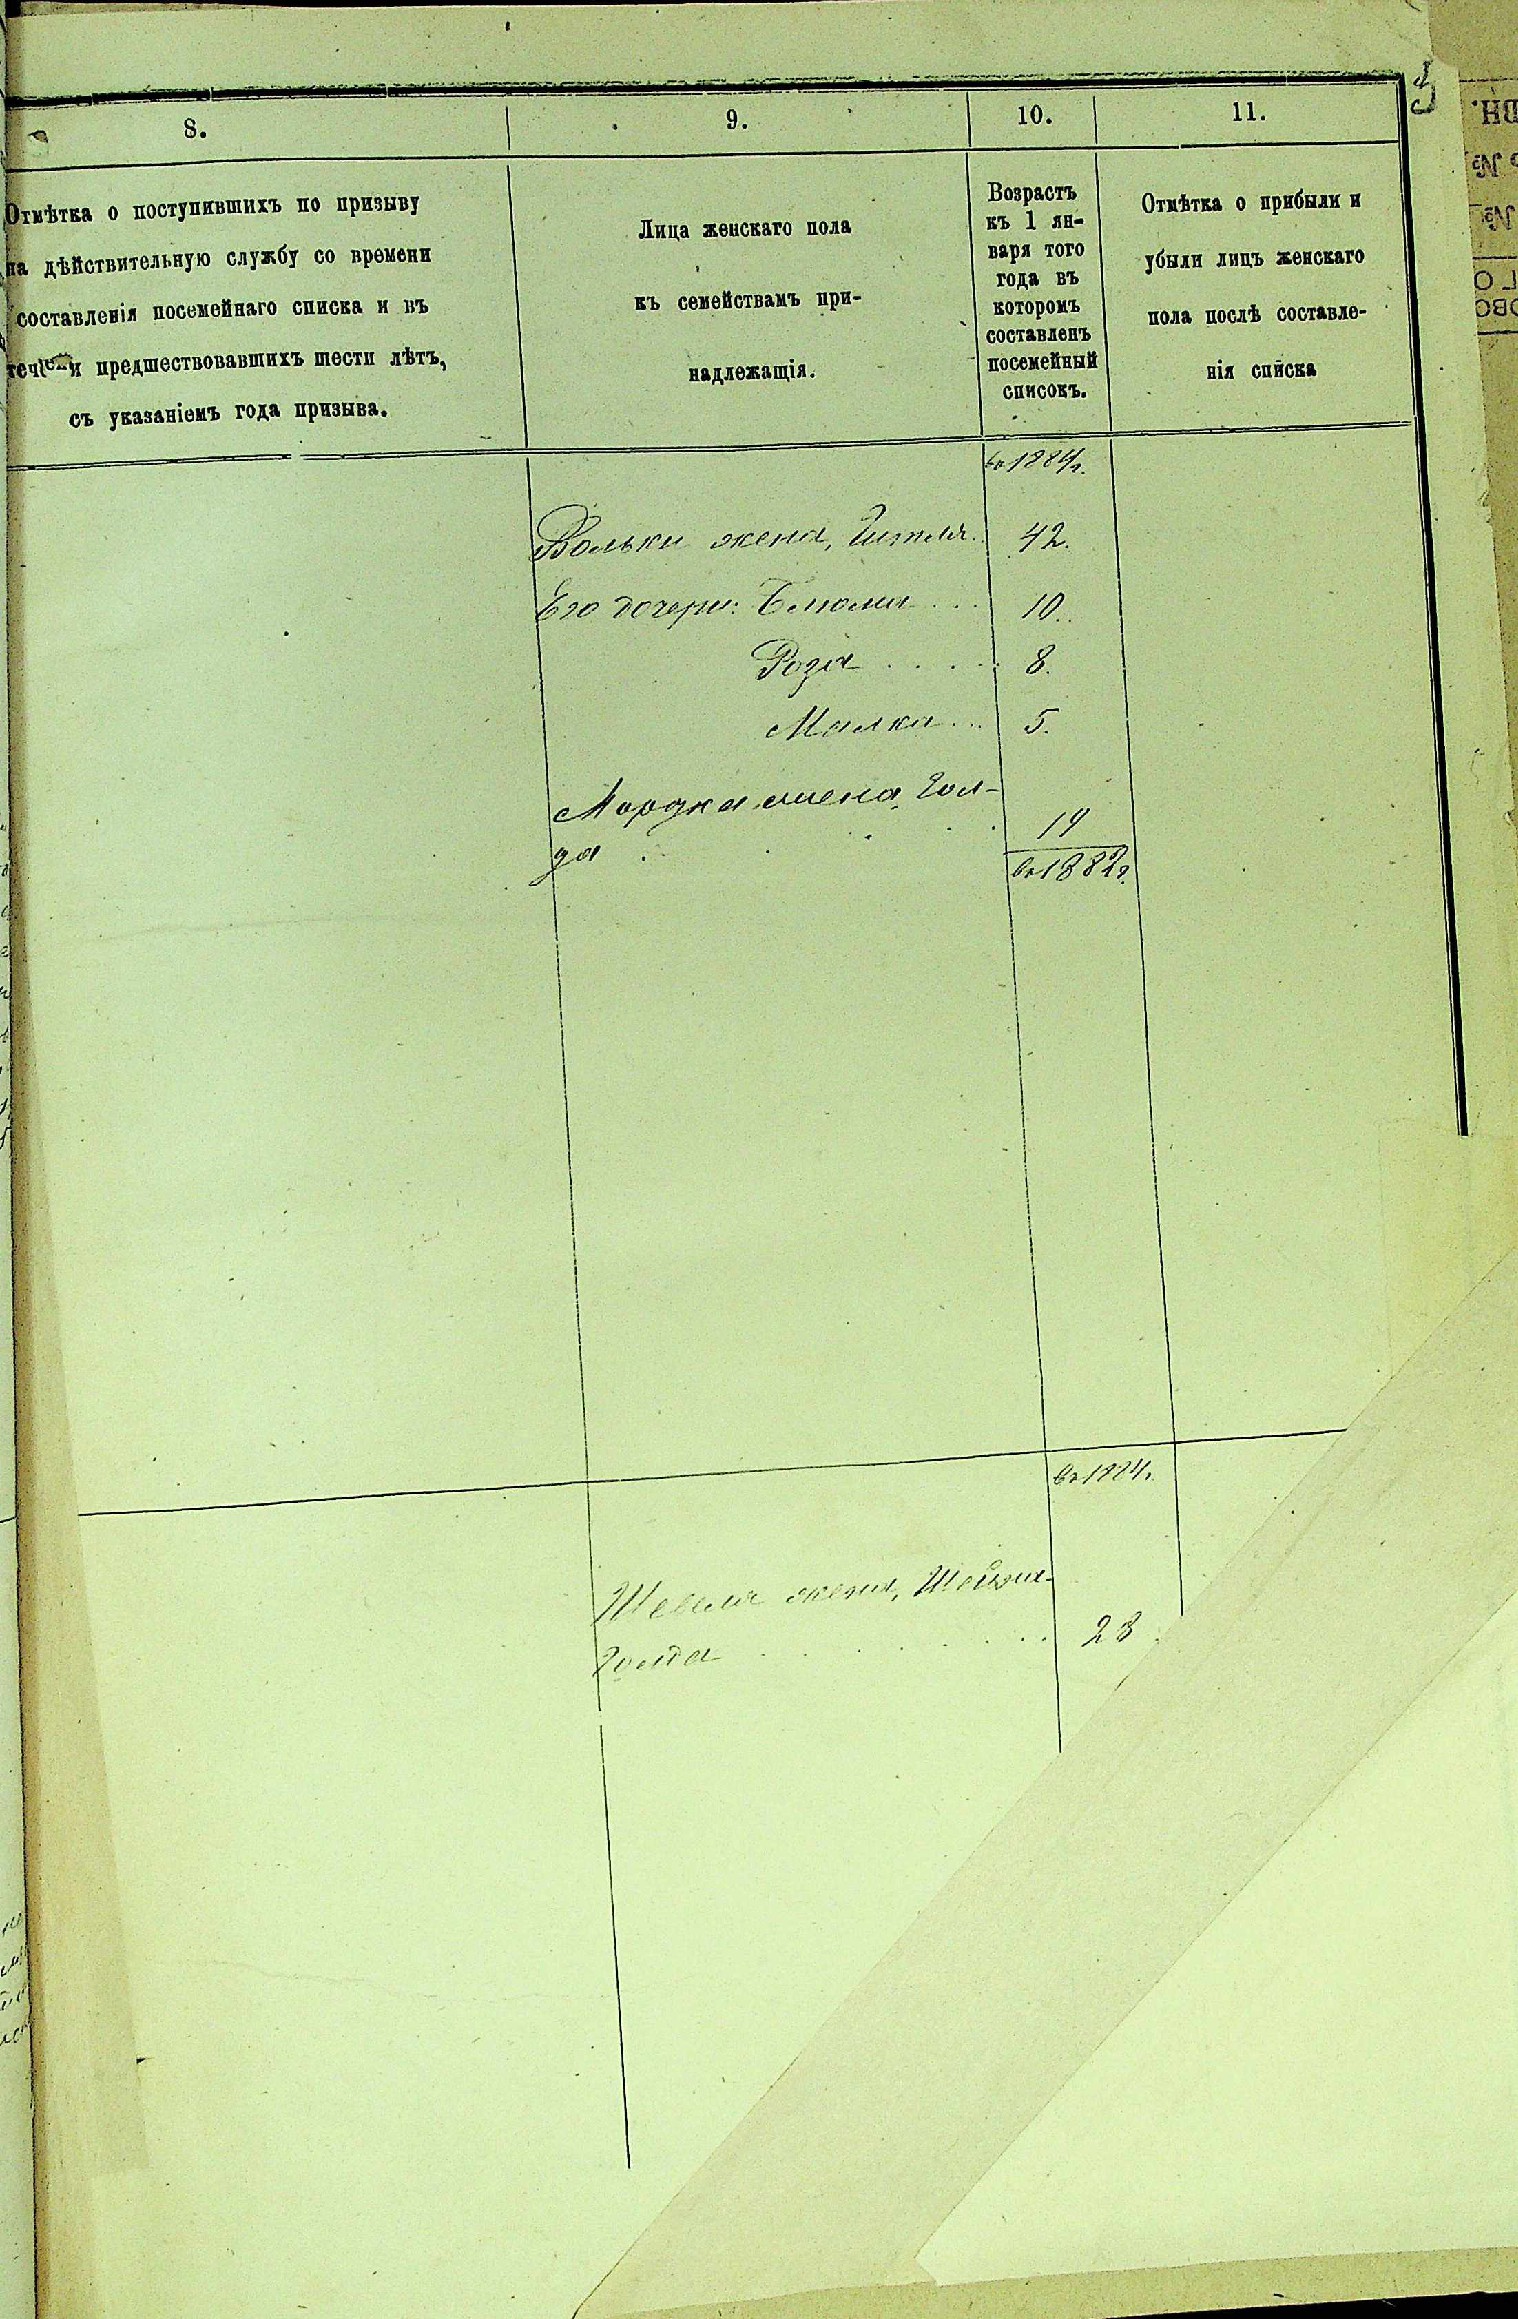 3
8.
9.
10.
11.
Отмѣтка о поступившихъ по призыву
на дѣйствительную службу со времени
составленія посемейнаго списка и въ
теченіи предшествовавшихъ шести лѣтъ,
съ указаніемъ года призыва.
Лица женскаго пола
къ семействамъ при-
надлежащія.
Возрастъ
къ 1 ян-
варя того
года въ
которомъ
составленъ
посемейный
списокъ.
Отмѣтка о прибыли и
убыли лицъ женскаго
пола послѣ составле-
нія списка
въ 1884 г.
Вольки жена, Гитля.. 42.
Его дочери: Блюма ... 10..
Роза ..... 8.
Малка ... 5.
Мордка жена, Гол-
да . . . . 19
въ 1882 г.
въ 1884 г.
Шевеля жена, Шейна-
Голда ....... 28.